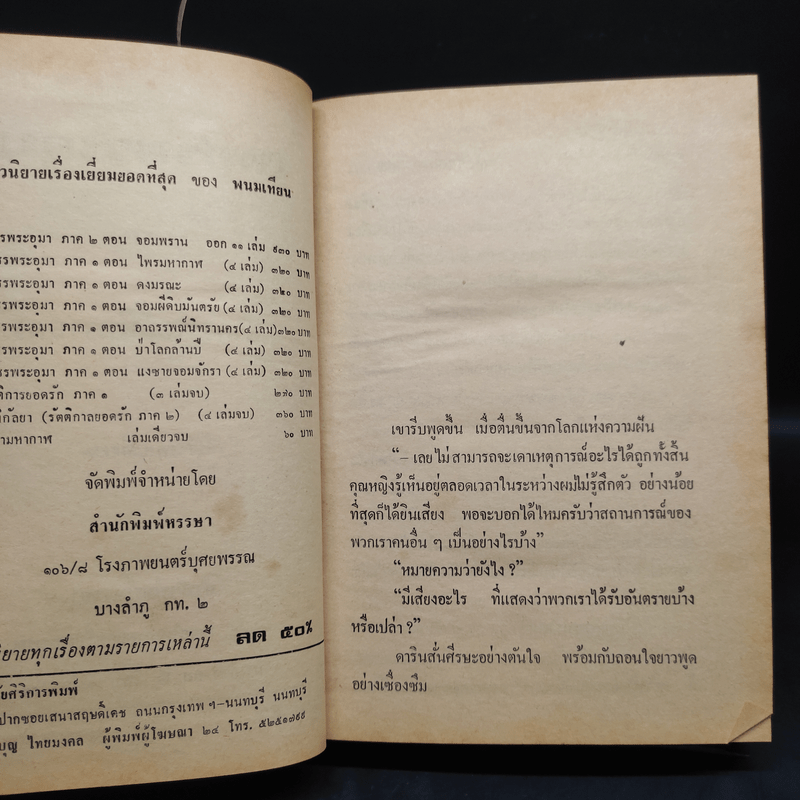 วนิยายเรื่องเยี่ยมยอดที่สุด ของ พนมเทียน
รพระอุมา ภาค ๒ ตอน จอมพราน ออก ๑๑ เล่ม ๙๓๐ บาท
รพระอุมา ภาค ๑ ตอน ไพรมหากาฬ (๔ เล่ม) ๓๒๐ บาท
รพระอุมา ภาค ๑ ตอน ดงมรณะ (๔ เล่ม) ๓๒๐ บาท
รพระอุมา ภาค ๑ ตอน จอมผีดิบมันตรัย (๔ เล่ม) ๓๒๐ บาท
รพระอุมา ภาค ๑ ตอน อาถรรพณ์นิทรานคร (๔ เล่ม) ๓๒๐ บาท
รพระอุมา ภาค ๑ ตอน ป่าโลกล้านปี (๔ เล่ม) ๓๒๐ บาท
รพระอุมา ภาค ๑ ตอน แงซายจอมจักรา (๔ เล่ม) ๓๒๐ บาท
ติการยอดรัก ภาค ๑ (๓ เล่มจบ) ๒๗๐ บาท
กัลยา (รัตติกาลยอดรัก ภาค ๒) (๔ เล่มจบ) ๓๖๐ บาท
ามหากาฬ เล่มเดียวจบ ๖๐ บาท
จัดพิมพ์จำหน่ายโดย
สำนักพิมพ์หรรษา
๑๐๖/๘ โรงภาพยนตร์บุศยพรรณ
บางลำภู กท. ๒
ิยายทุกเรื่องตามรายการเหล่านี้ ลด ๕๐%
ัยศิริการพิมพ์
ปากซอยเสนาสฤษดิ์เดช ถนนกรุงเทพ ฯ-นนทบุรี นนทบุรี
บุญ ไทยมงคล ผู้พิมพ์ผู้โฆษณา ๒๔ โทร. ๕๒๕๑๗๙๙
เขารีบพูดขึ้น เมื่อตื่นขึ้นจากโลกแห่งความฝัน
“– เลยไม่สามารถจะเดาเหตุการณ์อะไรได้ถูกทั้งสิ้น
คุณหญิงรู้เห็นอยู่ตลอดเวลาในระหว่างผมไม่รู้สึกตัว อย่างน้อย
ที่สุดก็ได้ยินเสียง พอจะบอกได้ไหมครับว่าสถานการณ์ของ
พวกเราคนอื่น ๆ เป็นอย่างไรบ้าง”
“หมายความว่ายังไง ?”
“มีเสียงอะไร ที่แสดงว่าพวกเราได้รับอันตรายบ้าง
หรือเปล่า ?”
ดารินสั่นศีรษะอย่างตันใจ พร้อมกับถอนใจยาวพูด
อย่างเซื่องซึม